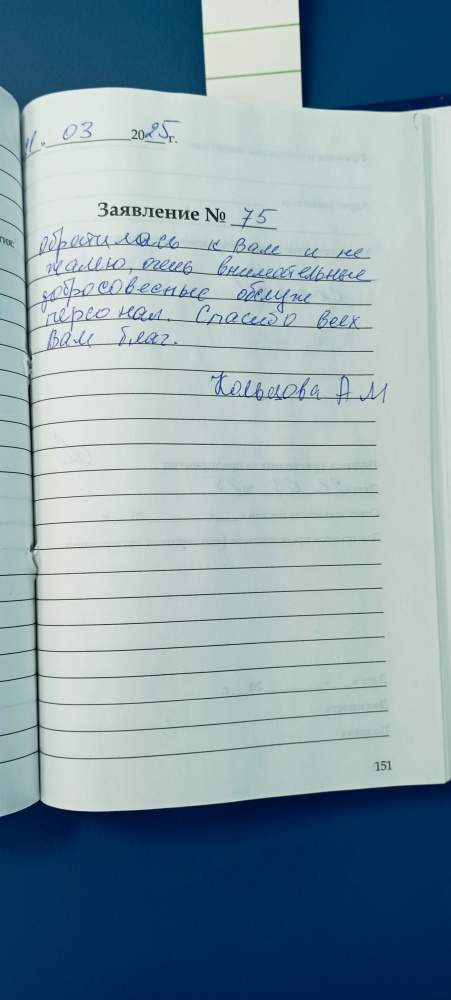 03 2025г.
Заявление № 75
обратилась к Вам и не
жалею, очень внимательные
добросовесные обслуж
персонал. Спасибо всех
Вам благ.
Кольцова А М
151